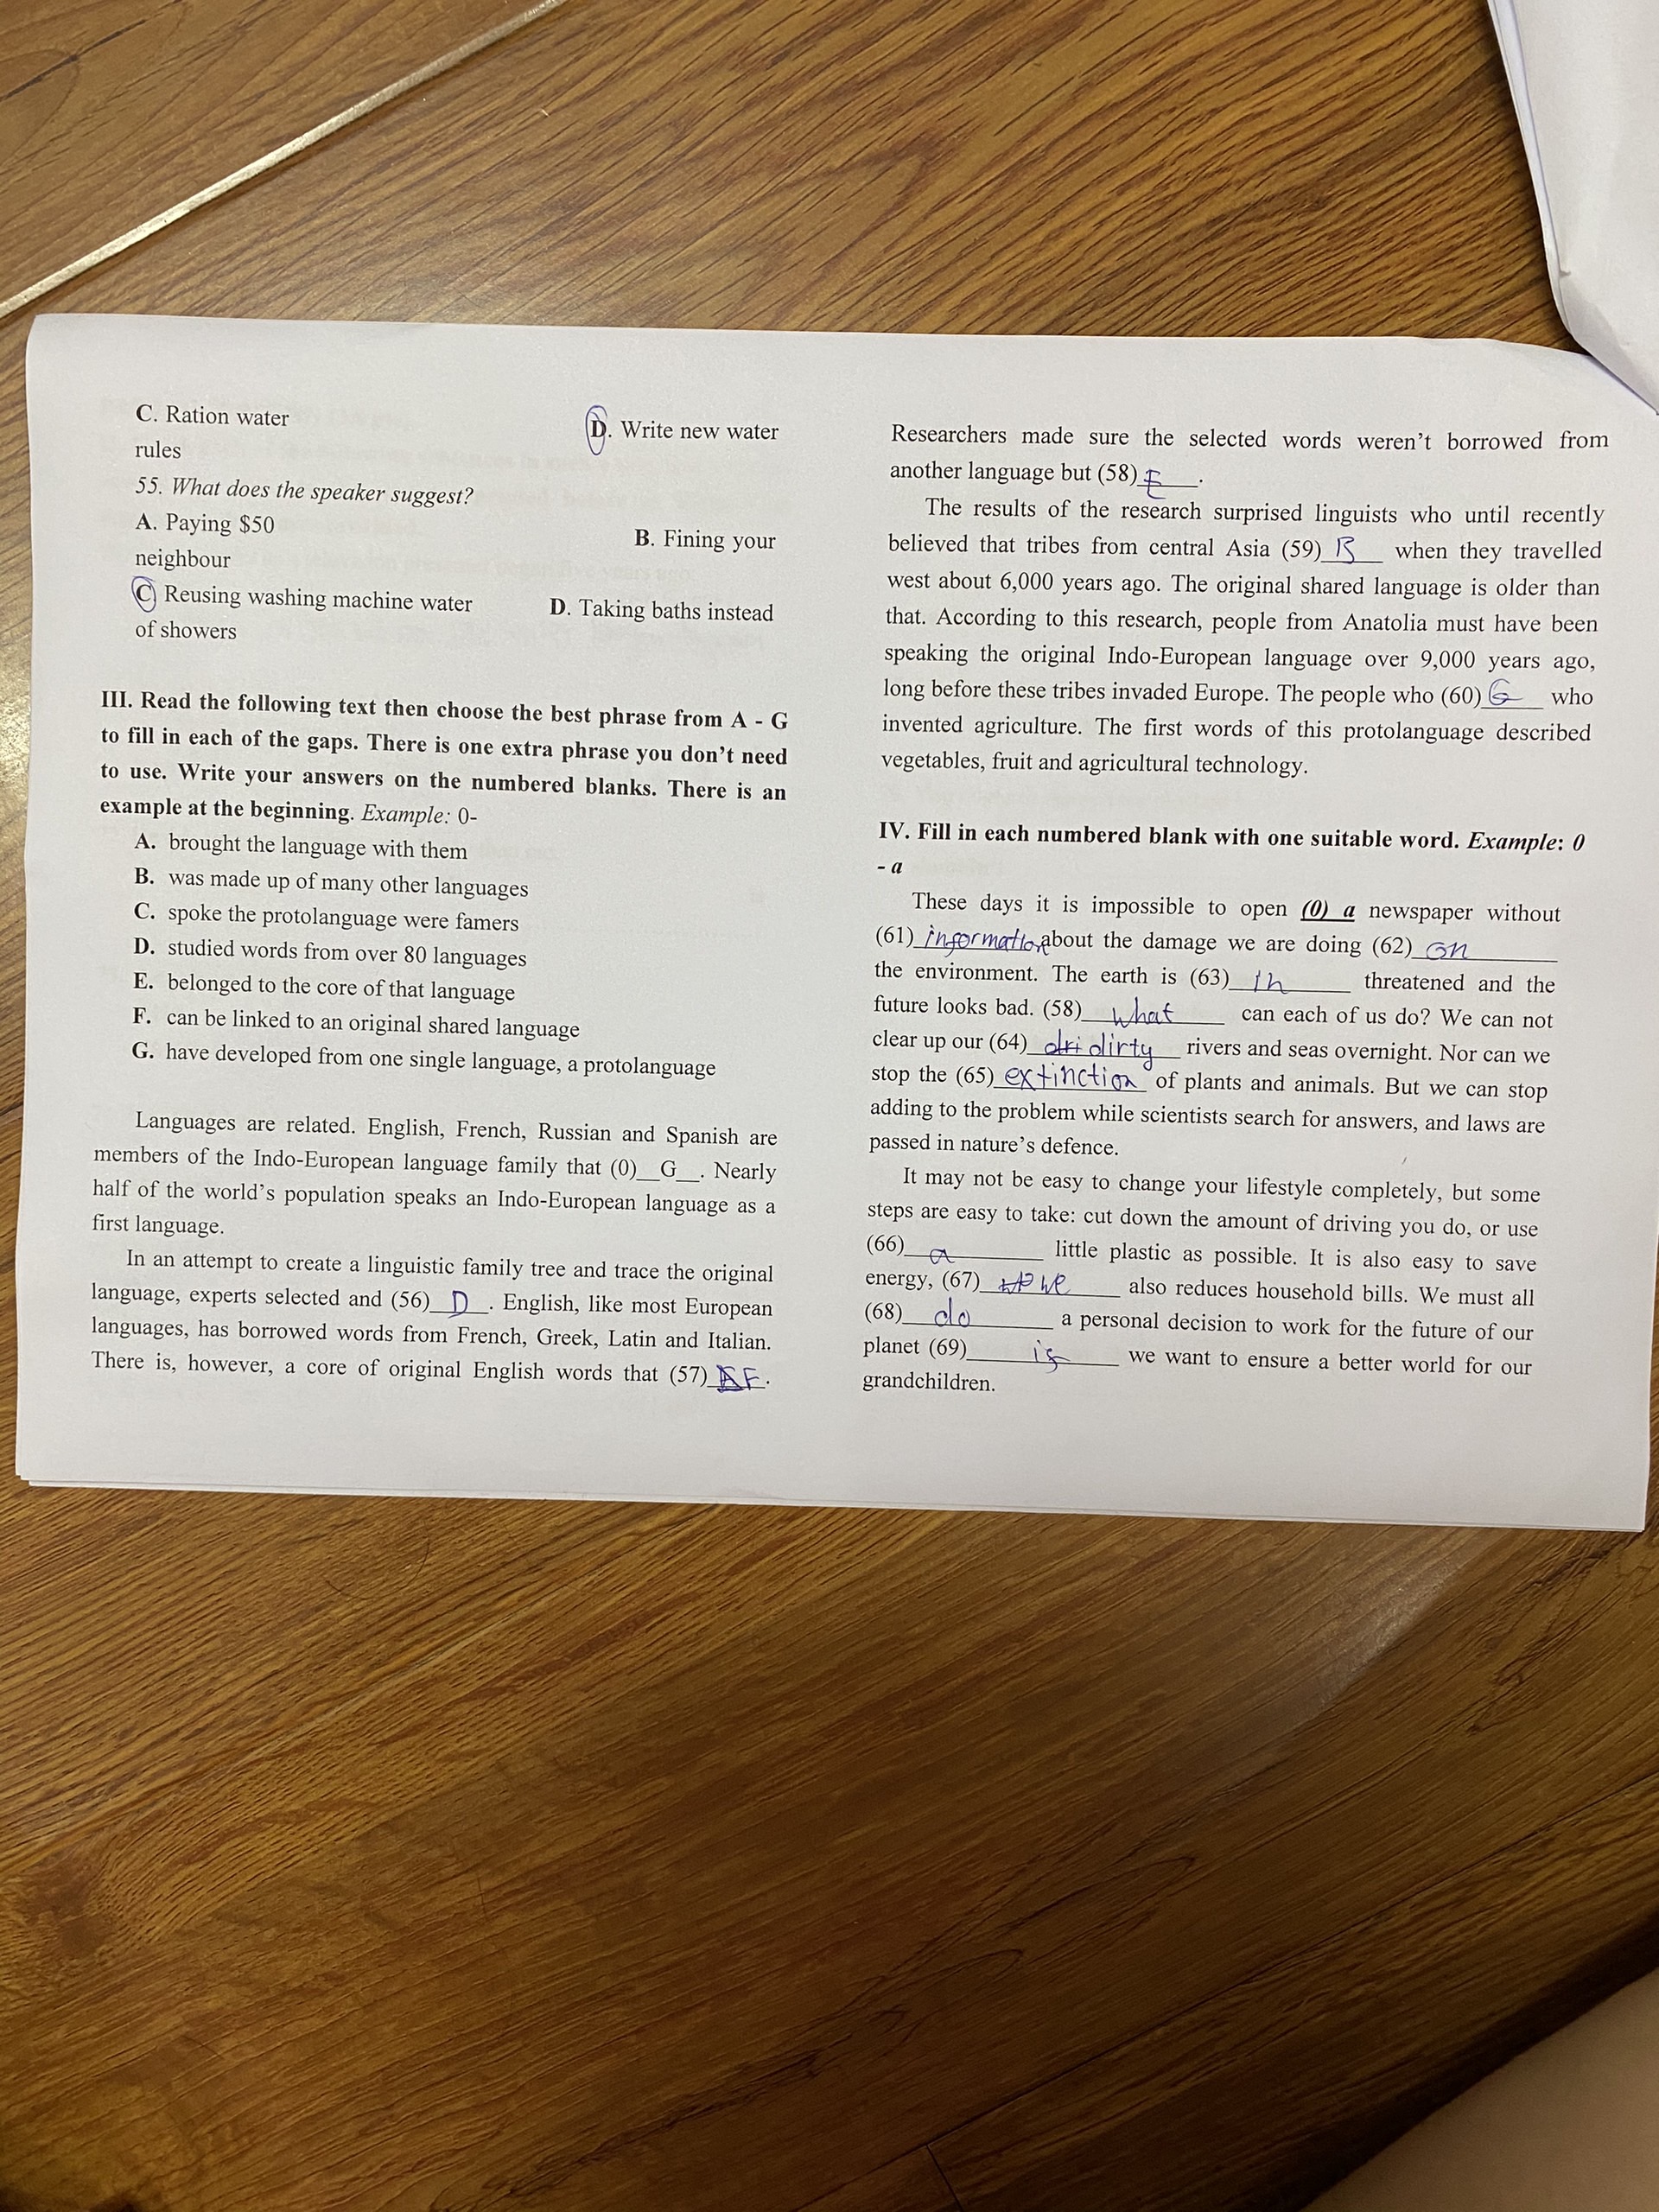 C. Ration water D. Write new water
rules
55. What does the speaker suggest?
A. Paying $50 B. Fining your
neighbour
C Reusing washing machine water D. Taking baths instead
of showers
III. Read the following text then choose the best phrase from A - G
to fill in each of the gaps. There is one extra phrase you don't need
to use. Write your answers on the numbered blanks. There is an
example at the beginning. Example: 0-
A. brought the language with them
B. was made up of many other languages
C. spoke the protolanguage were famers
D. studied words from over 80 languages
E. belonged to the core of that language
F. can be linked to an original shared language
G. have developed from one single language, a protolanguage
Languages are related. English, French, Russian and Spanish are
members of the Indo-European language family that (0)__G__. Nearly
half of the world's population speaks an Indo-European language as a
first language.
In an attempt to create a linguistic family tree and trace the original
language, experts selected and (56) D . English, like most European
languages, has borrowed words from French, Greek, Latin and Italian.
There is, however, a core of original English words that (57) F.
Researchers made sure the selected words weren't borrowed from
another language but (58) E .
The results of the research surprised linguists who until recently
believed that tribes from central Asia (59) B when they travelled
west about 6,000 years ago. The original shared language is older than
that. According to this research, people from Anatolia must have been
speaking the original Indo-European language over 9,000 years ago,
long before these tribes invaded Europe. The people who (60) G who
invented agriculture. The first words of this protolanguage described
vegetables, fruit and agricultural technology.
IV. Fill in each numbered blank with one suitable word. Example: 0
- a
These days it is impossible to open (0) a newspaper without
(61) information about the damage we are doing (62) on
the environment. The earth is (63) in threatened and the
future looks bad. (58) what can each of us do? We can not
clear up our (64) dirty rivers and seas overnight. Nor can we
stop the (65) extinction of plants and animals. But we can stop
adding to the problem while scientists search for answers, and laws are
passed in nature's defence.
It may not be easy to change your lifestyle completely, but some
steps are easy to take: cut down the amount of driving you do, or use
(66) a little plastic as possible. It is also easy to save
energy, (67) we also reduces household bills. We must all
(68) do a personal decision to work for the future of our
planet (69) is we want to ensure a better world for our
grandchildren.